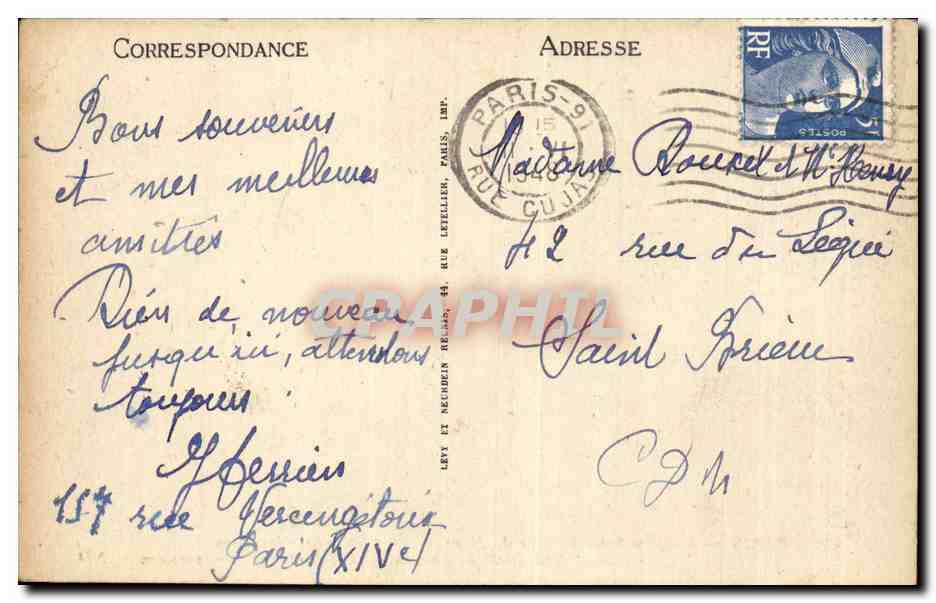 CORRESPONDANCE
Bons souvenirs
et mes meilleures
amitiés
Rien de nouveau
jusqu'ici, attendons
toujours
157 rue Vercingétorix
Paris (XIVe)
LEVY ET NEURDEIN REUNIS, 44, RUE LETELLIER, PARIS, IMP.
ADRESSE
PARIS-91
15
RUE CUJAS
RF
POSTES
Madame Rouxel et Mr Henry
42 rue du Légué
Saint Brieuc
CDN
CPAPHIL